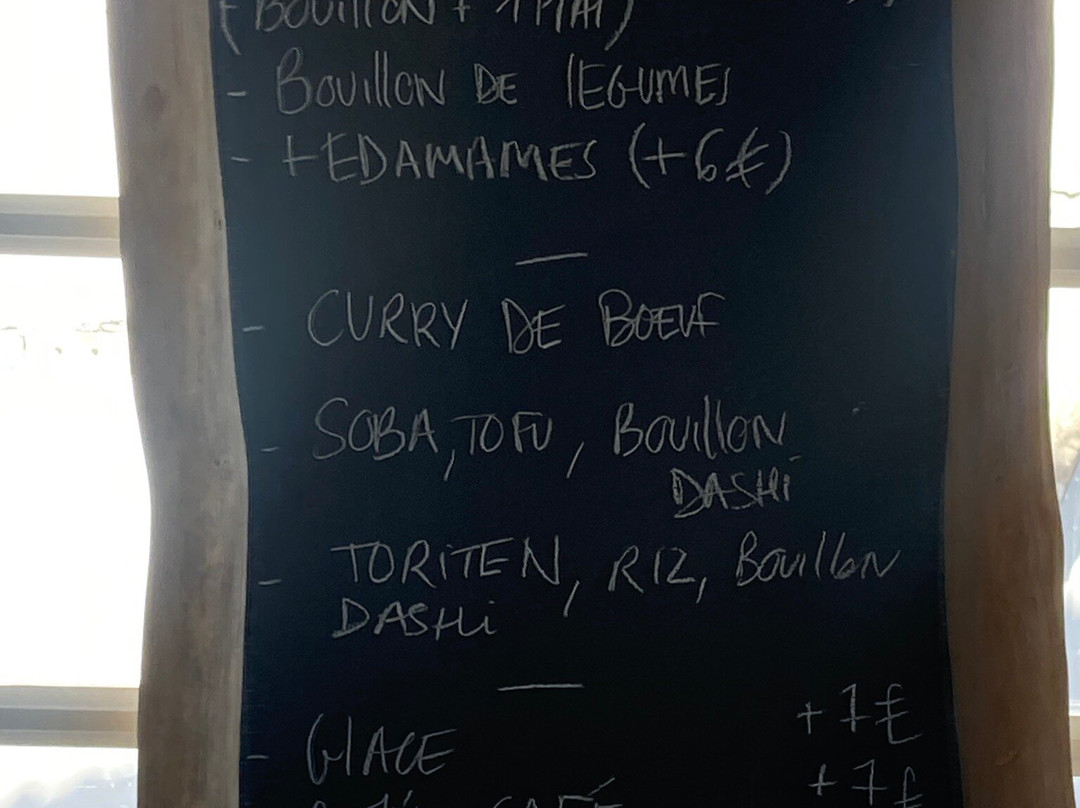 (BOUILLON + 1 PLAT)
- BOUILLON DE LEGUMES
- + EDAMAMES (+6€)
- CURRY DE BOEUF
- SOBA, TOFU, BOUILLON
DASHI
- TORITEN, RIZ, BOUILLON
DASHI
+7€
- GLACE
+7€
CAFÉ